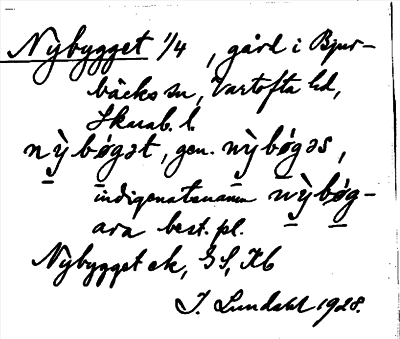 Nybygget 1/4, gård i Bjur-
bäcks sn, Vartofta hd,
Skarab. l.
nỳbǿgət, gen. nỳbǿgəs,
indigenatsnamn nỳbǿg-
ara best. pl.
Nybygget ek, GS, Kb
I. Lundahl 1928.